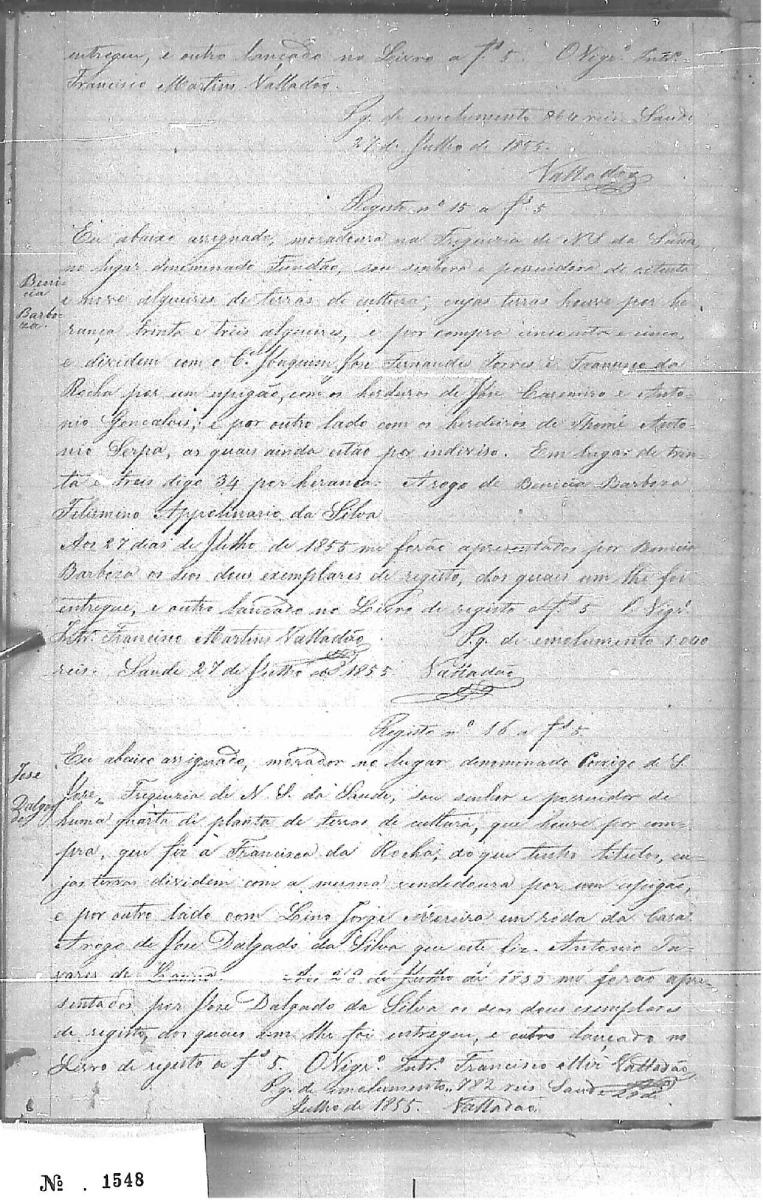 entregue, e outro lançado no Livro a fs 5. O Vigrº. Intrº.
Francisco Martins Valladão.
Pg. de emolumento 864 reis. Saude
27 de Julho de 1855.
Valladão
Registo nº 15 a fs 5
Eu abaixo assignado, moradoura na Freguezia de N S da Saude,
no lugar denominado Fundão, sou senhora e possuidora de oitenta
Beni-
cia
Barbo-
za.
e nove alqueires de terras de cultura, cujas terras houve por he-
rança trinta e treis alqueires, e por compra cincoenta e cinco,
e dividem com o Cel. Joaquim José Fernandes Torres e Francisco da
Rocha por um espigão, com os herderos de José Casemiro e Anto-
nio Goncalves, e por outro lado com os herdeiros de Thomé Anto-
nio Serpa, as quais ainda estão por indiviso. Em lugar de trin-
ta e treis digo 34 por herança. Arogo de Benicia Barboza
Felismino Appolinario da Silva
Aos 27 dias de Julho de 1855 me forão apresentados por Benicia
Barboza os seos dous exemplares de registo, dos quais um lhe foi
entregue, e outro lançado no Livro de registo a fs 5 O Vigrº.
Intrº. Francisco Martins Valladão. Pg. de emolumento 1.040
reis. Saude 27 de Julho de 1855 Valladão
Registo nº 16 a fs 5.
Jose
Dalga-
do
Eu abaixo assignado, morador no lugar denominado Corrigo de S.
Jose, Freguezia de N. S. da Saude, sou senhor e possuidor de
huma quarta de planta de terras de cultura, que houve por com-
pra, que fiz à Francisca da Rocha, do que tenho titulos, cu-
jas terras dividem com a mesma vendedoura por um espigão,
e por outro lado com Lino Jorge Moreira em roda da Casa
Arogo de Jose Dalgado da Silva que este fiz. Antonio Ta-
vares de Aos 28 de Julho de 1855 me forão apre-
sentados por Jose Dalgado da Silva os seos dous exemplares
de registo, dos quais um lhe foi entregue, e outro lançado no
Livro de registo a fs 5. O Vigrº. Intrº. Francisco Miz Valladão
Pg. de emolumento 782 reis Saude
Julho de 1855. Valladão.
Nº . 1548